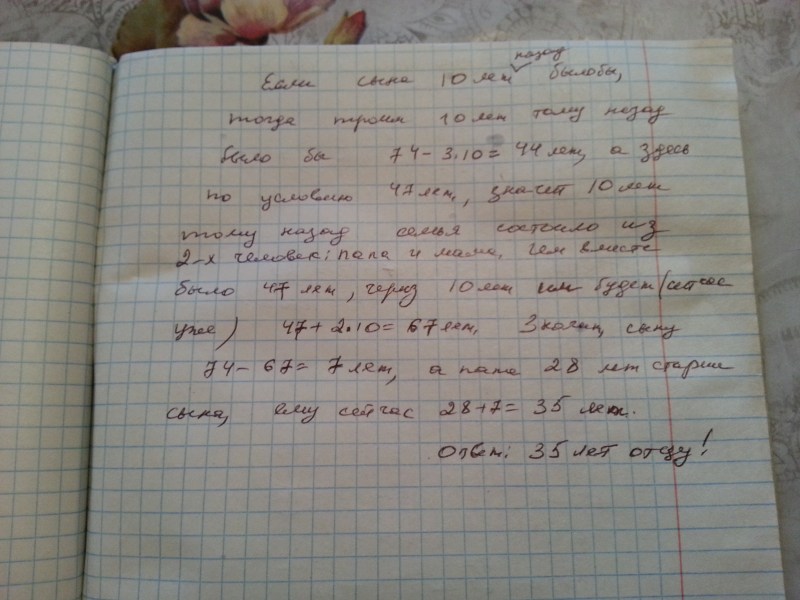 назад
Если сына 10 лет былобы,
тогда троим 10 лет тому назад
было бы 74-3.10= 44 лет, а здесь
по условию 47 лет, значит 10 лет
тому назад семья состояло из
2-х человек: папа и мама, вместе
было 47 лет, через 10 лет им будет (сейчас
уже) 47+2.10= 67 лет. Значит, сыну
74- 67= 7 лет, а папа 28 лет старше
сына, ему сейчас 28+7= 35 лет.
Ответ: 35 лет отцу!